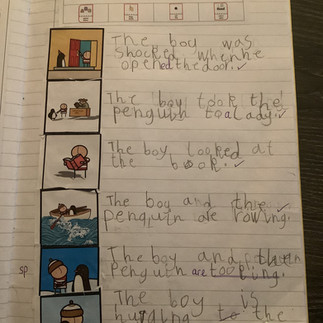 The boy was
shocked when he
opened the door.
The boy took the
penguin to a lady.
The boy looked at
the book.
The boy and the
penguin are rowing.
The boy and
sp
penguin are
The boy is
hugging to the